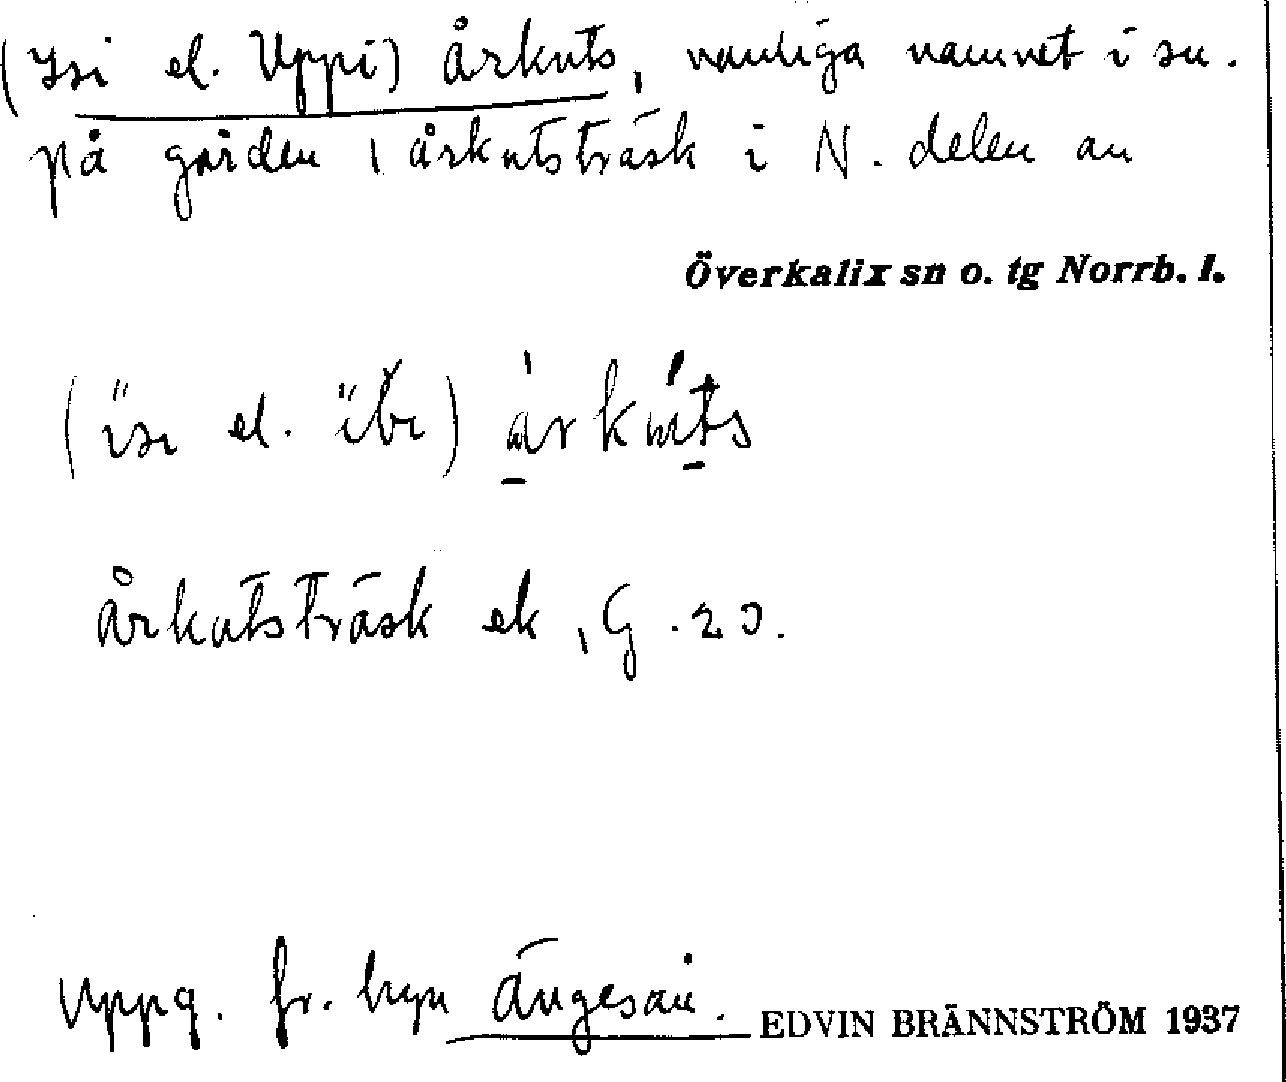 (Isi el. Uppi) Årkuts, vanliga namnet i sn.
på gården i Årkutsträsk i N. delen av
Överkalix sn o. tg Norrb. l.
el. årkuts
Årkutsträsk ek, G. 20.
Uppg. fr. byn Ängesån. EDVIN BRÄNNSTRÖM 1937